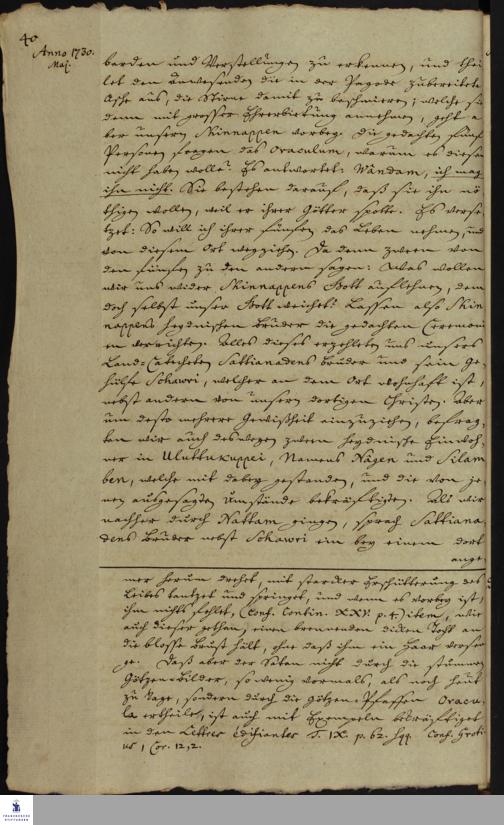 40
Anno 1730.
Maj.
berden und Verstellungen zu erkennen, und thei
let den Anwesenden die in der Pagode zubereitete
Asche aus, die Stirne damit zu beschmieren; welche sie
denn mit grosser Ehrerbietung annehmen, geht a
ber unsern Schinnappen vorbey. Die gedachten fünf
Personen fragen das Oraculum, warum es diesen
nicht haben wolle? Es antwortet: Wandam, ich mag
ihn nicht. Sie bestehen darauf, daß sie ihn nö
thigen wollen, weil er ihrer Götter spotte. Es verse
tzet: So will ich ihrer fünfen das Leben nehmen, und
von diesem Ort wegziehen. Da denn zween von
den fünfen zu den andern sagen: Was wollen
wir uns wider Schinnappens Gott auflehnen, dem
doch selbst unser Gott weichet? Lassen also Schin
nappens heydnischen Brüder die gedachten Ceremoni
en verrichten. Alles dieses erzehleten uns unsers
Land-Catecheten Sattianadens Bruder und sein Ge
hülfe Schawri, welcher an dem Ort wohnhaft ist,
nebst andern von unsern dortigen Christen. Aber
um desto mehrere Gewißheit einzuziehen, befrag,
ten wir auch deswegen zween heydnische Einwoh,
ner in Uluttukuppei, Namens Nagen und Silam
ben, welche mit dabey gestanden, und die von je,
nen ausgesagten Umstände bekräftigten. Als wir
nachher durch Nattam gingen, sprach Sattiana
dens Bruder nebst Schawri ein bey einem dort
ange
mer herum drehet, mit starcker Erschütterung des
Leibes tantzet und springet, und wenn es vorbey ist,
ihm nichts fehlet, (Conf. Contin. XXV. p. 4.) item, wie
auch dieser gethan, einen brennenden dicken Tocht an
die blosse Brust hält, ohne daß ihm ein Haar versen
ge. Daß aber der Satan nicht durch die stummen
Götzen-Bilder, so wenig vormals, als noch heut
zu Tage, sondern durch die Götzen-Pfaffen Oracu-
la ertheile, ist auch mit Exempeln bekräftiget
in den Lettres Edifiantes T. IX. p. 62. sqq. Conf. Groti
us 1 Cor. 12, 2.
FRANCKESCHE
STIFTUNGEN